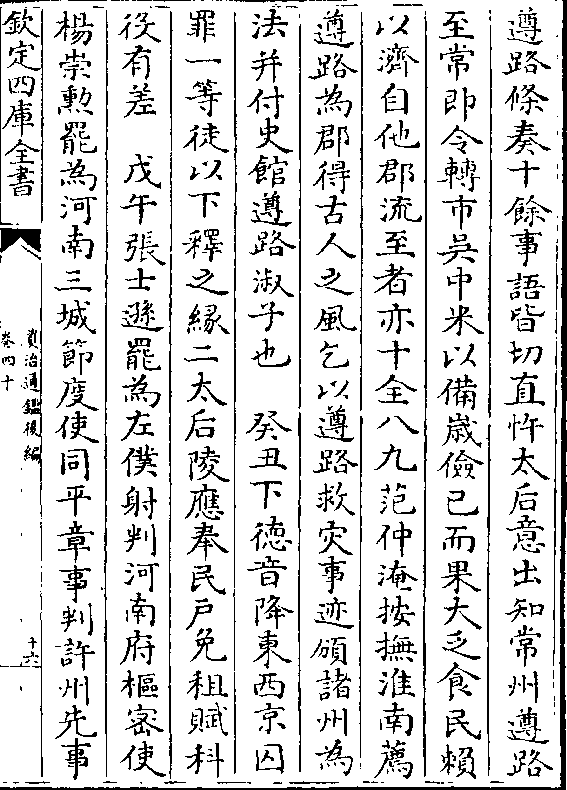 遵路條奏十餘事語皆切直忤太后意出知常州遵路
至常即令轉市吳中米以備歳儉已而果大乏食民賴
以濟自他郡流至者亦十全八九范仲淹按撫淮南薦
遵路為郡得古人之風乞以遵路救灾事迹頒諸州為
法并付史館遵路淑子也　癸丑下德音降東西京囚
罪一等徒以下釋之緣二太后陵應奉民户免租賦科
役有差　戊午張士遜罷為左僕射判河南府樞密使
楊崇勲罷為河南三城節度使同平章事判許州先事
欽定四庫全書
資治通鑑後編
卷四十
十六